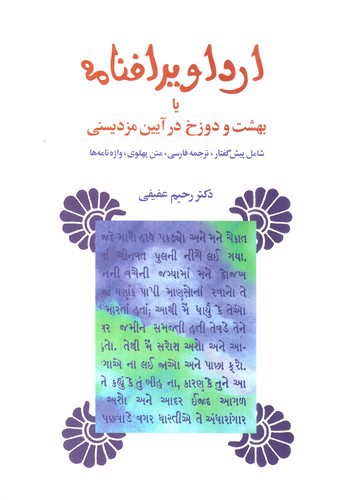 ارداویرافنامه
یا
بهشت و دوزخ در آیین مزدیسنی
شامل پیش‌گفتار، ترجمه فارسی، متن پهلوی، واژه‌نامه‌ها
دکتر رحیم عفیفی
મારો હાથ પકડ્યો અને મને ચૈકાત
ચીનવત પુલની નીચે લઈ ગયા.
વચેની જગ્યામાં મને દોજખ
પાપી માણસોનાં રવાનો તે
મારતાં હતાં; આથી મેં ધાર્યું કે તેઓ
જમીન સમજતી હતી તેવડે તેને
તેથી મેં સરોશ અશો અને
ના લઈ જાઓ અને પાછા ફરો.
ને કહ્યું કે તું બીહ ના, કારણ કે તુંને આ
અશો અને આદર ઈજદ આગળ
પછવાડે વગર ધાસ્તીએ તે અંધારાંગાર